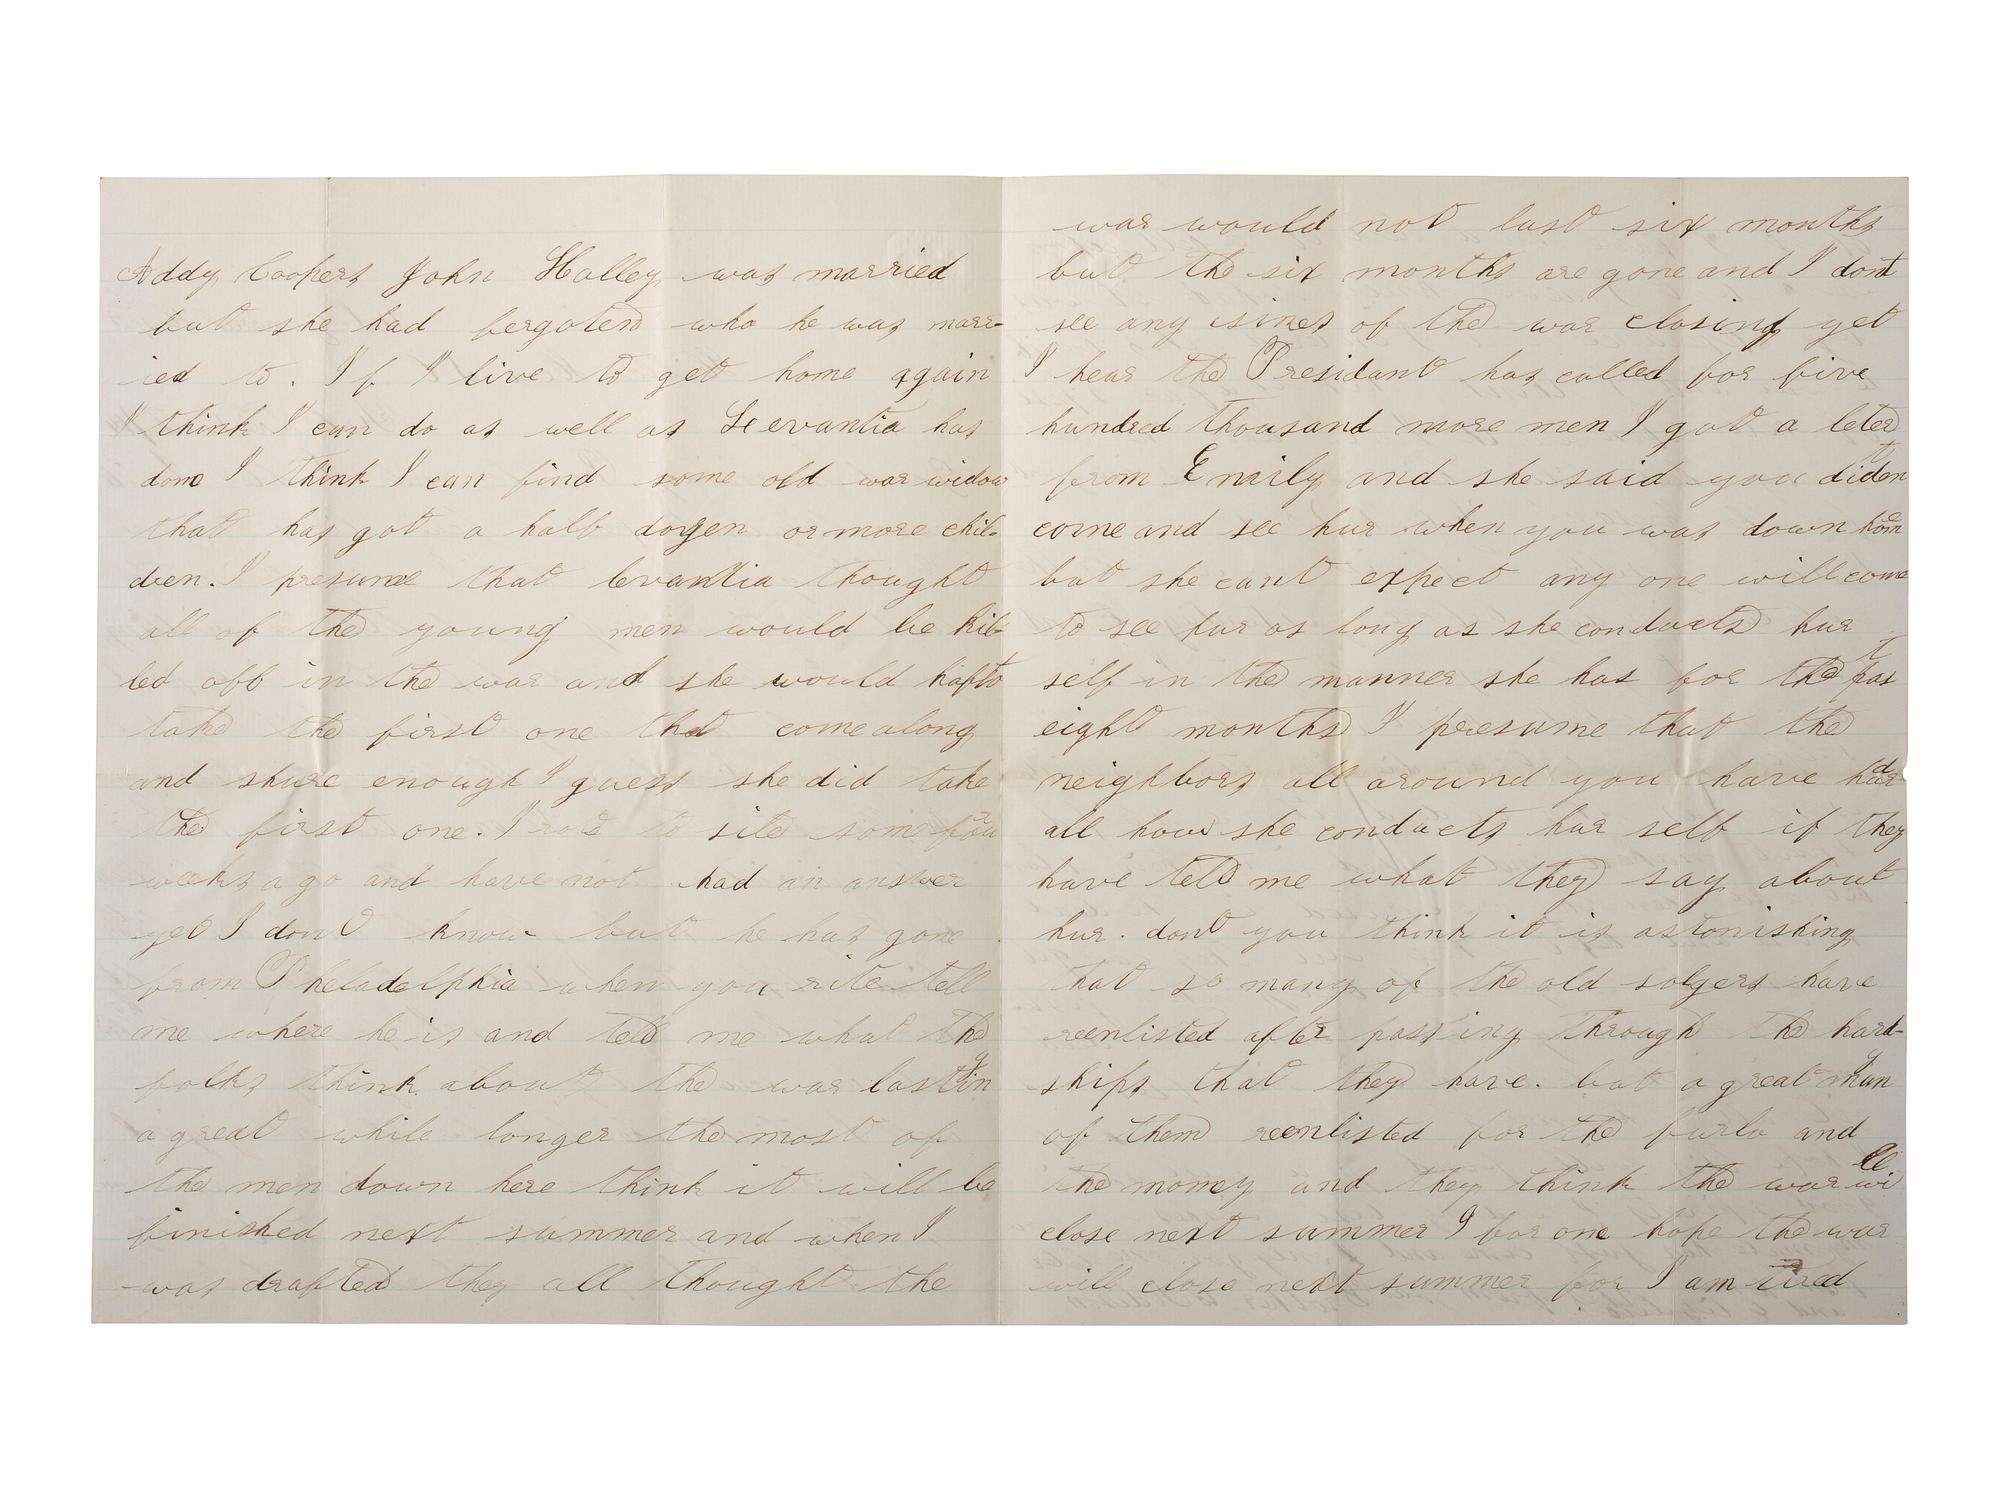 Addy Coopers John Holley was married
but she had fergoten who he was marr-
ied to. If I live to get home again
I think I can do as well as Levantia has
done I think I can find some old war widow
that has got a half dozen or more chil-
dren. I presume that Levantia thought
all of the young men would be kil-
led off in the war and she would hafto
take the first one that come along
and shure enough I guess she did take
the first one. I rote to site some four
weeks ago and have not had an answer
yet I dont know but he has gone
from Pheladelphia when you rite tell
me where he is and tell me what the
folks think about the war lasting
a great while longer the most of
the men down here think it will be
finished next summer and when I
was drafted they all thought the
war would not last six months
but the six months are gone and I dont
see any sines of the war closing yet
I hear the Presidant has called for five
hundred thousand more men I got a leter
from Emily and she said you didont
come and see hur when you was down home
but she cant expect any one will come
to see hur as long as she conducts hur
self in the manner she has for the past
eight months I presume that the
neighbors all around you have hard
all how she conducts hur self if they
have tell me what they say about
hur. dont you think it is astonishing
that so many of the old solgers have
reenlisted after passing through the hard-
ships that they have. but a great many
of them reenlisted for the furlo and
the money and they think the war will
close next summer I for one hope the war
will close next summer for I am tired